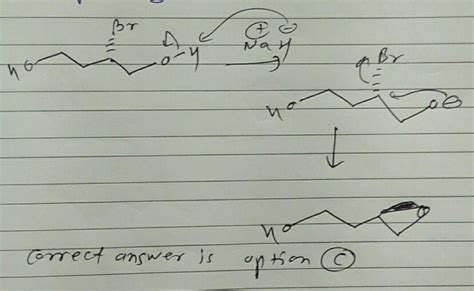 Br
HO O-H
⊕ ⊖
NaH
Br
HO O⊖
HO O
Correct answer is option Ⓒ